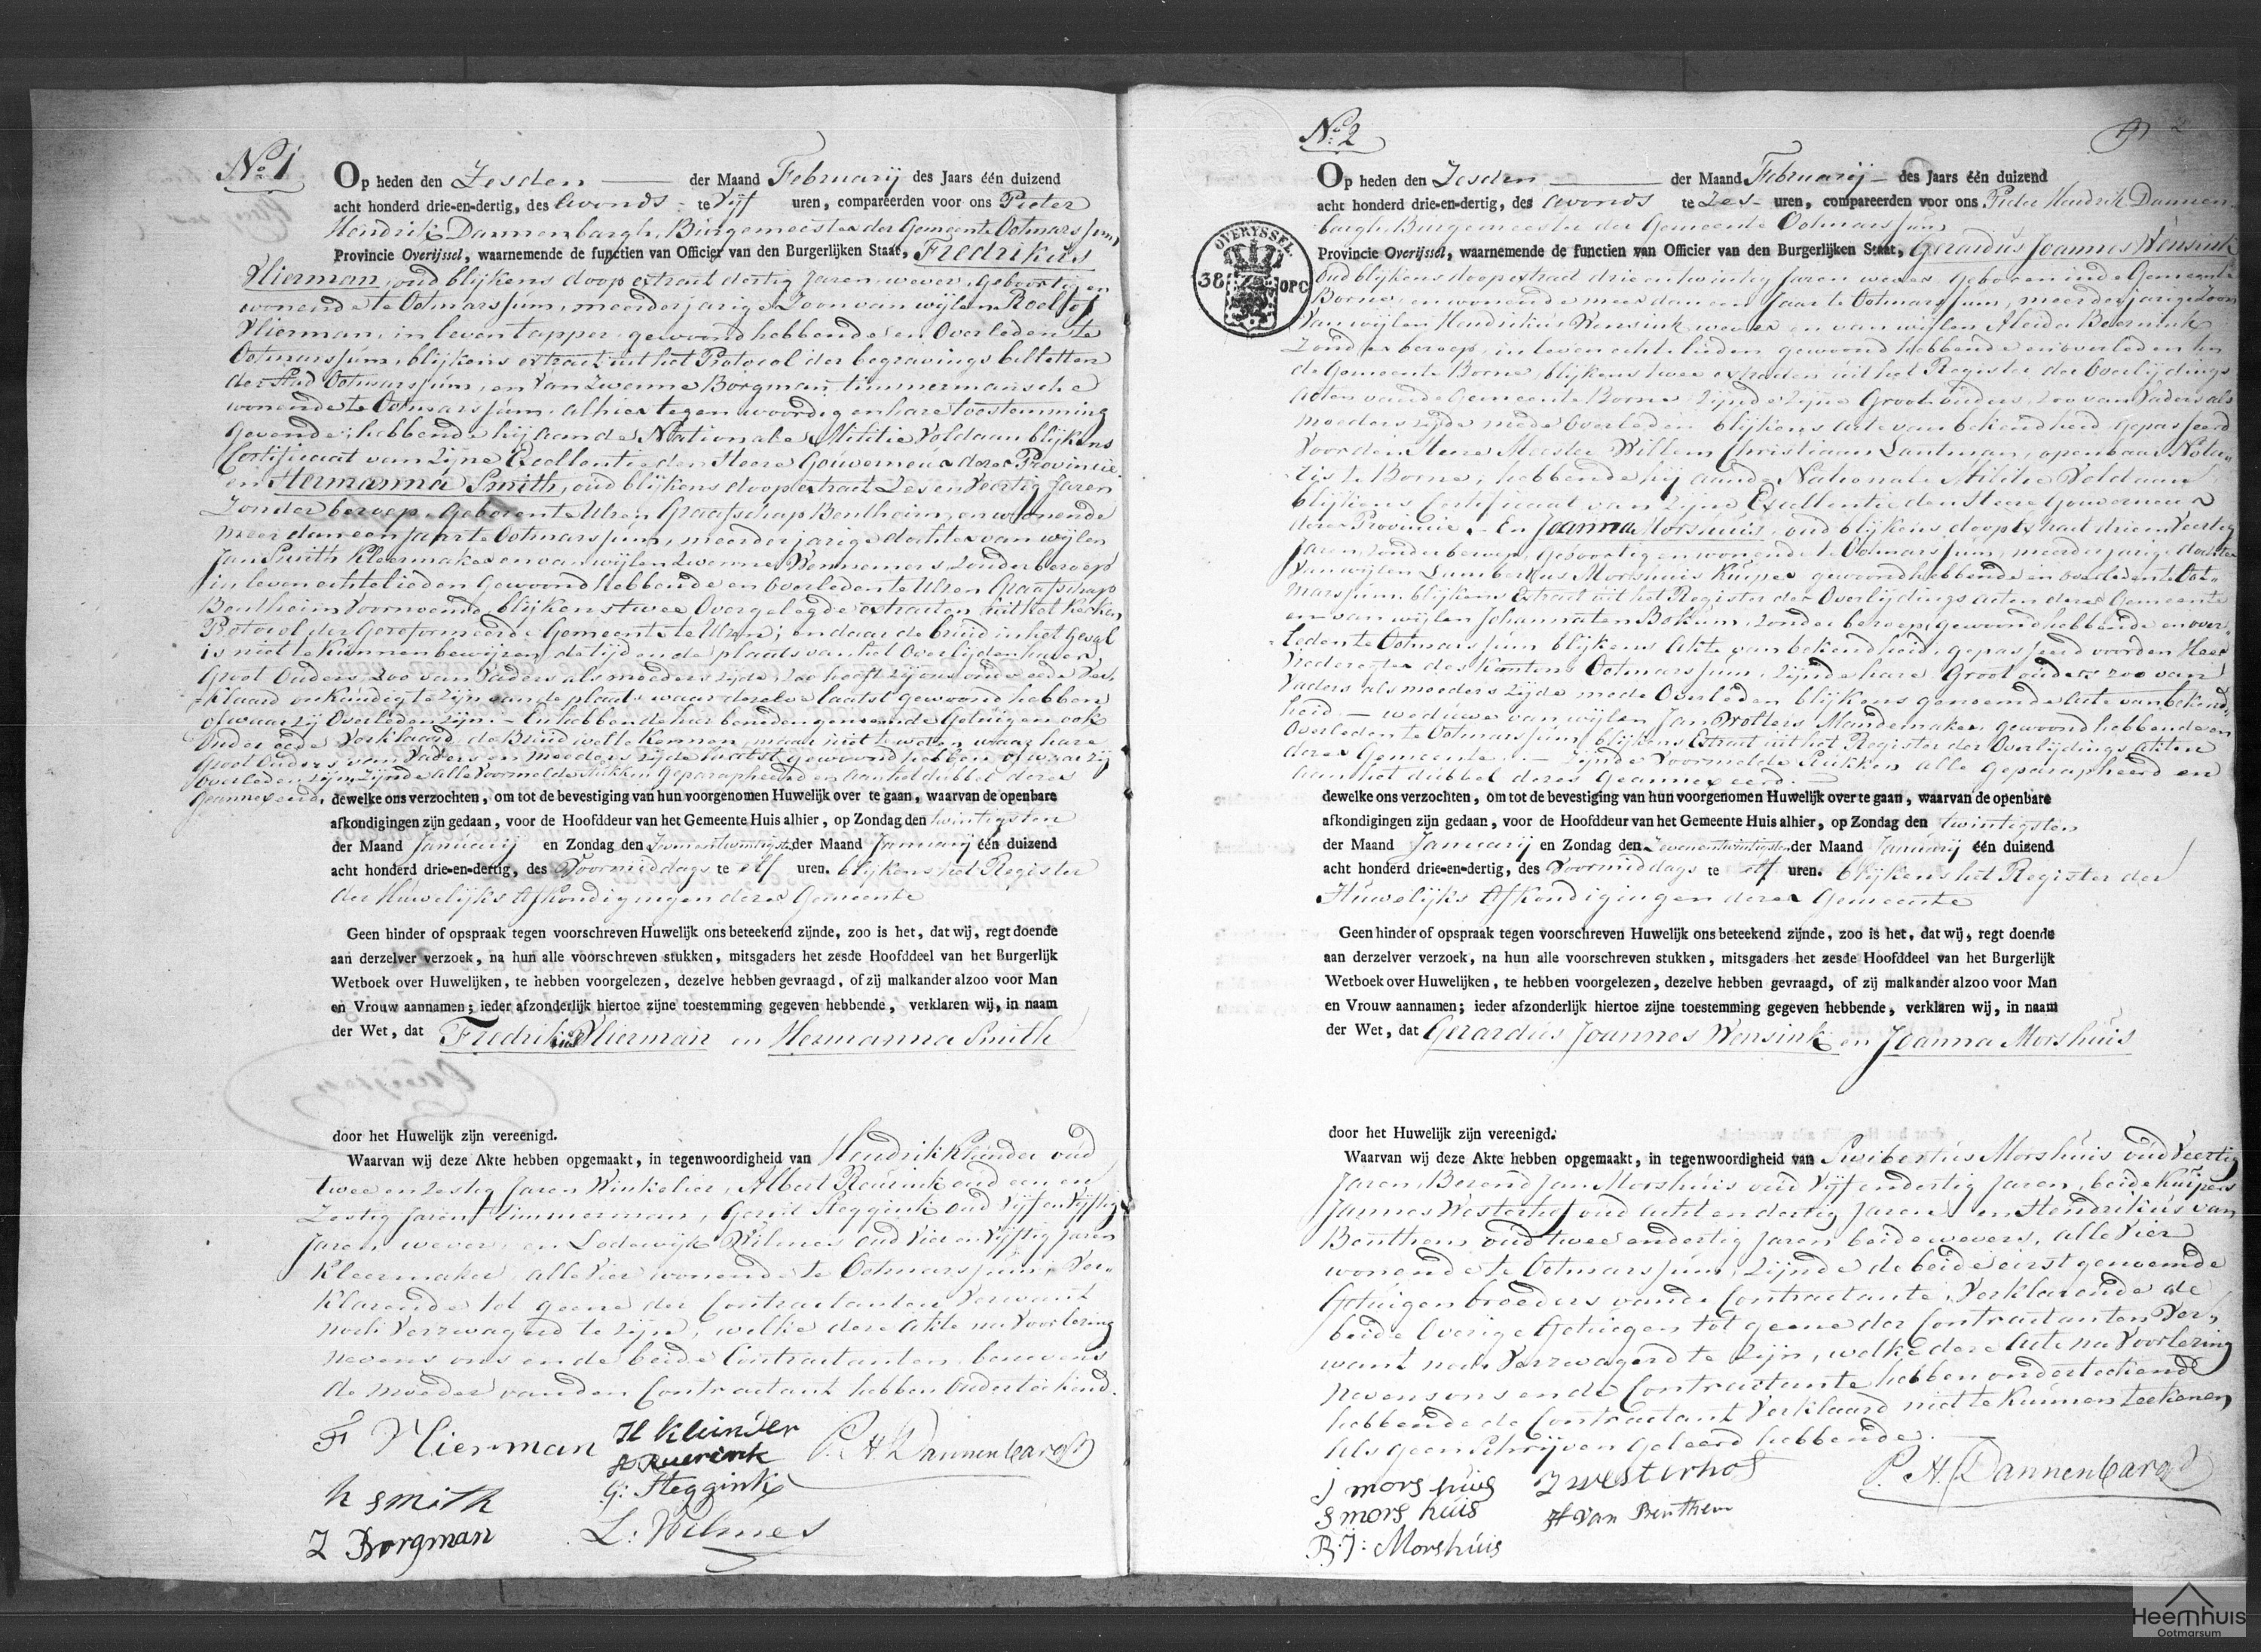 No. 1
Op heden den Zesden der Maand Februarij des Jaars één duizend
acht honderd drie-en-dertig, des avonds te Vijf uren, compareerden voor ons Pieter
Hendrik Dannenbargh, Burgemeester der Gemeente Ootmarssum,
Provincie Overijssel, waarnemende de functien van Officier van den Burgerlijken Staat, Fredrikus
Vlierman, oud blijkens doop extract dertig Jaren, wever, geboortig en
wonende te Ootmarssum, meerderjarige Zoon van wijlen Roelof
Vlierman, in leven tapper, gewoond hebbende en Overleden te
Ootmarssum, blijkens extract uit het Protocol der begravings billetten
der Stad Ootmarssum, en van Zwenne Borgman, timmermansche
wonende te Ootmarssum, alhier tegenwoordig en hare toestemming
gevende; hebbende hij aan de Nationale Militie Voldaan blijkens
Certificaat van Zijne Excellentie den Heere Gouverneur dezer Provincie.
en Hermanna Smith, oud blijkens doop extract Zes en Veertig Jaren
Zonder beroep, geboren te Ulzen Graafschap Bentheim, en wonende
meer dan een Jaar te Ootmarssum, meerderjarige dochter van wijlen
Jan Smith Kleermaker en van wijlen Zwenne Wennemers Zonder beroep
in leven echtelieden gewoond hebbende en overleden te Ulzen Graafschap
Bentheim Voornoemd, blijkens twee Overgelegde extracten uit het Kerken
Protocol der Gereformeerde Gemeente te Ulzen; en daar de bruid in het geval
is niet te kunnen bewijzen de tijd en de plaats van het Overlijden harer
Groot Ouders, zoo van Vaders als moeders zijde, zoo heeft zij ons onder eede Ver-
klaard onkundig te zijn van de plaats waar dezelve laatst gewoond hebben
of waar zij Overleden zijn. – En hebbende hier beneden genoemde Getuigen ook
onder eede Verklaard, de Bruid wel te kennen, maar niet te weten waar hare
Groot Ouders van Vaders en moeders zijde laatst gewoond hebben of waar zij
overleden zijn, zijnde alle voormelde stukken geparapheerd en aan het dubbel dezes
geannexeerd, dewelke ons verzochten, om tot de bevestiging van hun voorgenomen Huwelijk over te gaan, waarvan de openbare
afkondigingen zijn gedaan, voor de Hoofddeur van het Gemeente Huis alhier, op Zondag den twintigsten
der Maand Januarij en Zondag den Zevenentwintigsten der Maand Januarij één duizend
acht honderd drie-en-dertig, des Voormiddags te elf uren. blijkens het Register
der Huwelijks Afkondigingen dezer Gemeente
Geen hinder of opspraak tegen voorschreven Huwelijk ons beteekend zijnde, zoo is het, dat wij, regt doende
aan derzelver verzoek, na hun alle voorschreven stukken, mitsgaders het zesde Hoofddeel van het Burgerlijk
Wetboek over Huwelijken, te hebben voorgelezen, dezelve hebben gevraagd, of zij malkander alzoo voor Man
en Vrouw aannamen; ieder afzonderlijk hiertoe zijne toestemming gegeven hebbende, verklaren wij, in naam
der Wet, dat Fredrikus Vlierman en Hermanna Smith
door het Huwelijk zijn vereenigd.
Waarvan wij deze Akte hebben opgemaakt, in tegenwoordigheid van Hendrik Kleinder oud
twee en zestig Jaren Winkelier, Albert Reurink oud een en
Zestig Jaren Timmerman, Gerrit Steggink oud Vijf en Vijftig
Jaren wever, en Lodewijk Wilmes oud Vier en Vijftig Jaren
Kleermaker, alle Vier wonende te Ootmarssum, Ver-
klarende tot geene der Contractanten Verwant
noch Verzwagerd te zijn, welke deze Akte na Voorlezing
nevens ons en de beide Contractanten benevens
de moeder van den Contractant hebben Onderteekend.
F Vlierman
H Kleinder
P. H. Dannenbargh
A Ruerink
G: Steggink
h smith
L: Wilmes
Z Borgman
No. 2
Op heden den Zesden der Maand Februarij des Jaars één duizend
acht honderd drie-en-dertig, des avonds te Zes uren, compareerden voor ons Pieter Hendrik Dannen-
bargh, Burgemeester der Gemeente Ootmarssum,
OVERYSSEL
38 OPC
Provincie Overijssel, waarnemende de functien van Officier van den Burgerlijken Staat, Gerardus Joannes Wensink
Oud blijkens doop extract drie en twintig Jaren wever geboren in de Gemeente
Borne, en wonende meer dan een Jaar te Ootmarssum, meerderjarige Zoon
Van wijlen Hendrikus Wensink wever en van wijlen Aleida Beernink
Zonder beroep, in leven echtelieden gewoond hebbende en overleden in
de Gemeente Borne, blijkens twee extracten uit het Register der Overlijdings
acten van de Gemeente Borne Zijnde Zijne Grootouders zoo van Vaders als
moeders zijde mede Overleden blijkens Acte van bekendheid gepasseerd
Voor den Heere Meester Willem Christiaan Lantman, openbaar Nota-
ris te Borne; hebbende hij aan de Nationale Militie Voldaan
blijkens Certificaat van Zijne Excellentie den Heere Gouverneur
dezer Provincie. – En Joanna Morshuis, oud blijkens doop extract drie en Veertig
Jaren, zonder beroep, geboortig en wonende te Ootmarssum, meerderjarige dochter
Van wijlen Lambertus Morshuis Kuiper gewoond hebbende en overleden te Oot-
marssum blijkens Extract uit het Register der Overlijdings acten dezer Gemeente
en van wijlen Johanna ten Bokum, zonder beroep, gewoond hebbende en over-
leden te Ootmarssum blijkens Akte van bekendheid, gepasseerd voor den Heer
Vrederegter des Kantons Ootmarssum, Zijnde hare Groot ouders zoo van
Vaders als moeders zijde mede Overleden blijkens genoemde Acte van bekend-
heid – weduwe van wijlen Jan Wolters Mandemaker gewoond hebbende en
Overleden te Ootmarssum blijkens Extract uit het Register der Overlijdings akten
dezer Gemeente. – Zijnde Voormelde Stukken alle geparapheerd en
aan het dubbel dezes geannexeerd.
dewelke ons verzochten, om tot de bevestiging van hun voorgenomen Huwelijk over te gaan, waarvan de openbare
afkondigingen zijn gedaan, voor de Hoofddeur van het Gemeente Huis alhier, op Zondag den twintigsten
der Maand Januarij en Zondag den Zevenentwintigsten der Maand Januarij één duizend
acht honderd drie-en-dertig, des Voormiddags te elf uren. blijkens het Register der
Huwelijks Afkondigingen dezer Gemeente
Geen hinder of opspraak tegen voorschreven Huwelijk ons beteekend zijnde, zoo is het, dat wij, regt doende
aan derzelver verzoek, na hun alle voorschreven stukken, mitsgaders het zesde Hoofddeel van het Burgerlijk
Wetboek over Huwelijken, te hebben voorgelezen, dezelve hebben gevraagd, of zij malkander alzoo voor Man
en Vrouw aannamen; ieder afzonderlijk hiertoe zijne toestemming gegeven hebbende, verklaren wij, in naam
der Wet, dat Gerardus Joannes Wensink en Joanna Morshuis
door het Huwelijk zijn vereenigd.
Waarvan wij deze Akte hebben opgemaakt, in tegenwoordigheid van Swibertus Morshuis oud Veertig
Jaren, Berend Jan Morshuis oud Vijf en dertig Jaren, beide Kuipers
Jannes Westerhof oud acht en dertig Jaren en Hendrikus van
Benthem oud twee en dertig Jaren beide wevers, alle Vier
wonende te Ootmarssum, Zijnde de beide eerstgenoemde
Getuigen broeders van de Contractante, Verklarende de
beide Overige Getuigen tot geene der Contractanten Ver-
want noch Verzwagerd te zijn, welke deze Acte na Voorlezing
nevens ons en de Contractante hebben onderteekend
hebbende de Contractant Verklaard niet te kunnen teekenen
Als geen Schrijven geleerd hebbende.
j mors huis
J westerhof
P. H. Dannenbargh
s mors huis
H van Benthem
B: J: Morshuis
Heemhuis
Ootmarsum